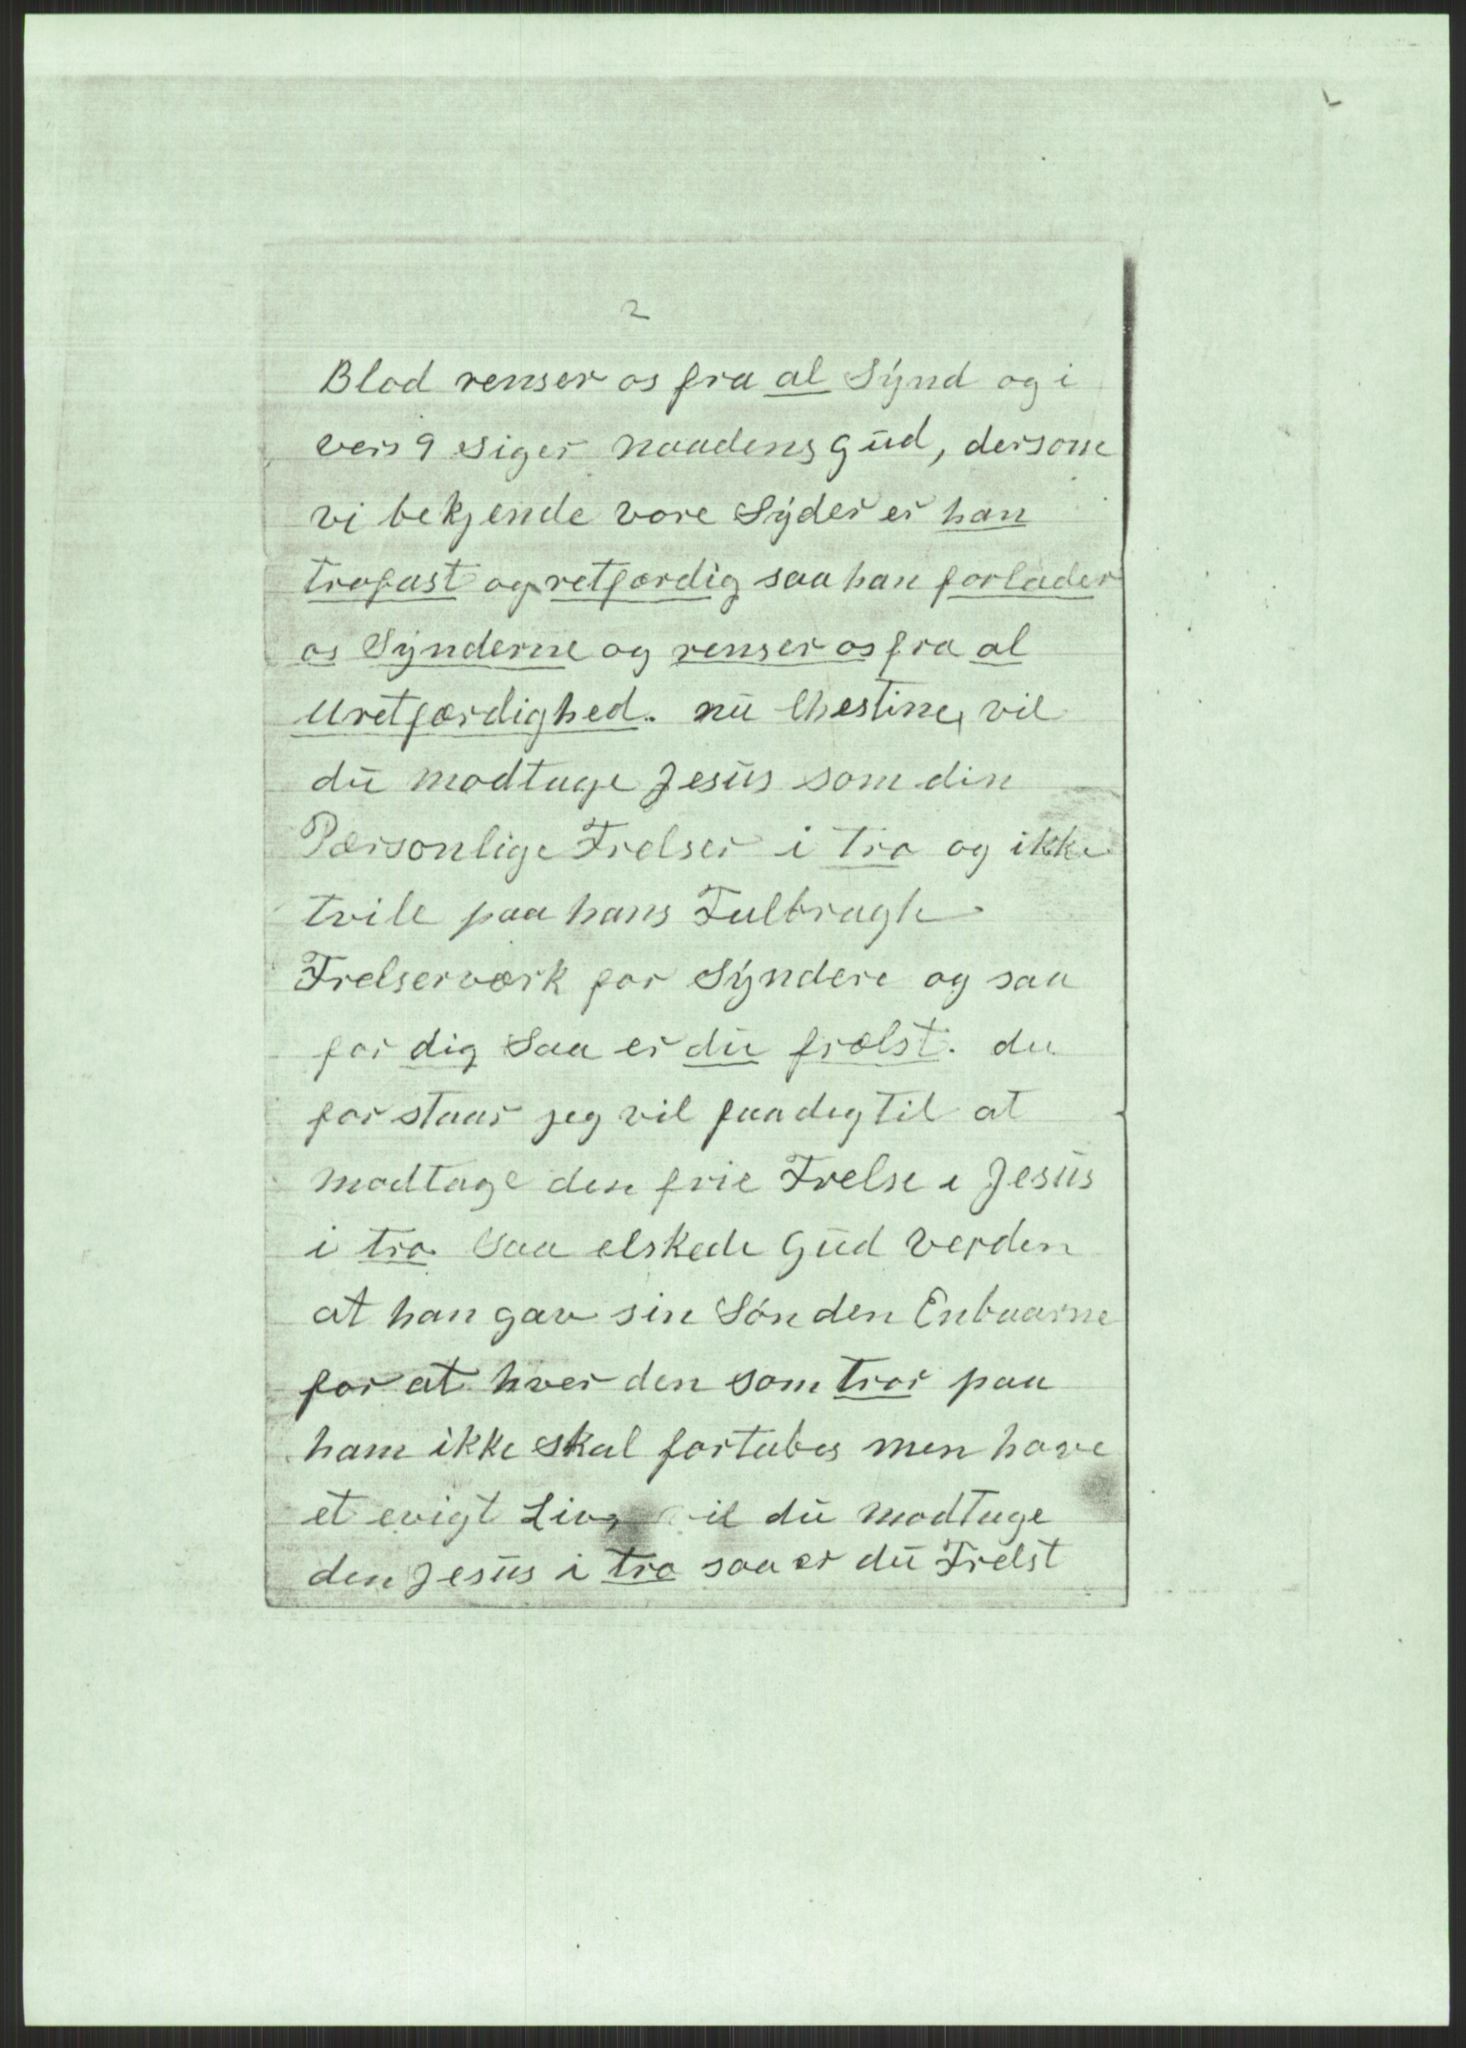 2
Blod renser os fra al Synd og i
vers 9 siger naadens Gud, dersom
vi bekjende vore Syder er han
trofast og retfærdig saa han forlader
os Synderne og renser os fra al
Uretfærdighed. nu Chestine, vil
du modtage Jesus som din
Pærsonlige Frelser i Tro og ikke
tvile paa hans Fulbragte
Frelserværk for Syndere og saa
for dig Saa er du frælst. du
forstaar jeg vil faa deg til at
modtage den frie Frelse i Jesus
i tro Saa elskede Gud Verden
at han gav sin Søn den Enbaarne
for at hver den som tror paa
ham ikke skal fortabes men have
et evigt Liv, vil du modtage
den Jesus i tro saa er du Frelst